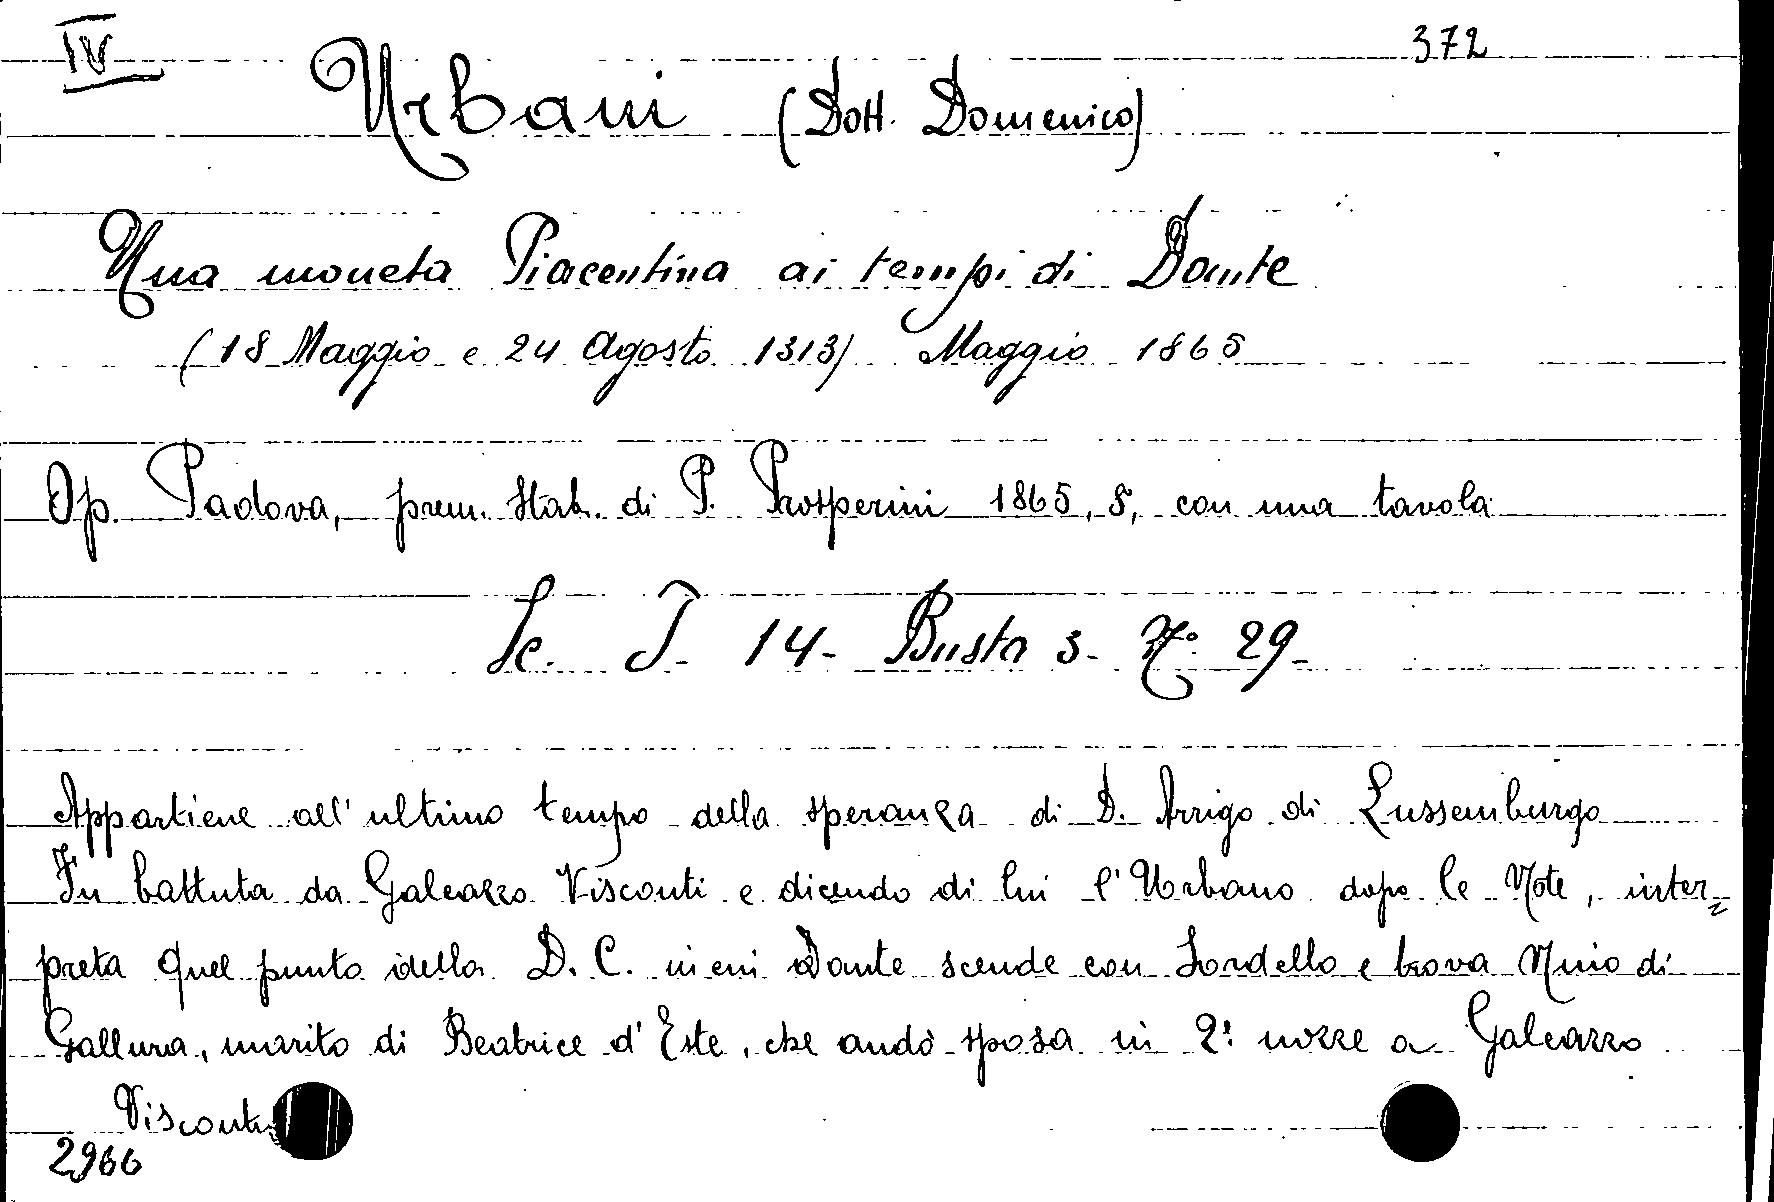 IV
372
Urbani (Dott. Domenico)
Una moneta Piacentina ai tempi di Dante
(18 Maggio e 24 Agosto 1313) Maggio 1865
Op. Padova, prem. Stab. di P. Prosperini 1865, 8, con una tavola
Sc. J. 14 - Busta 3 - N.º 29 -
Appartiene all' ultimo tempo della speranza di D. Arrigo di Lussemburgo
Fu battuta da Galeazzo Visconti e dicendo di lui l' Urbano dopo le Note, inter=
preta quel punto della D. C. in cui Dante scende con Sordello e trova Nino di
Gallura, marito di Beatrice d' Este, che andò sposa in 2ª nozze a Galeazzo
Visconti
2966